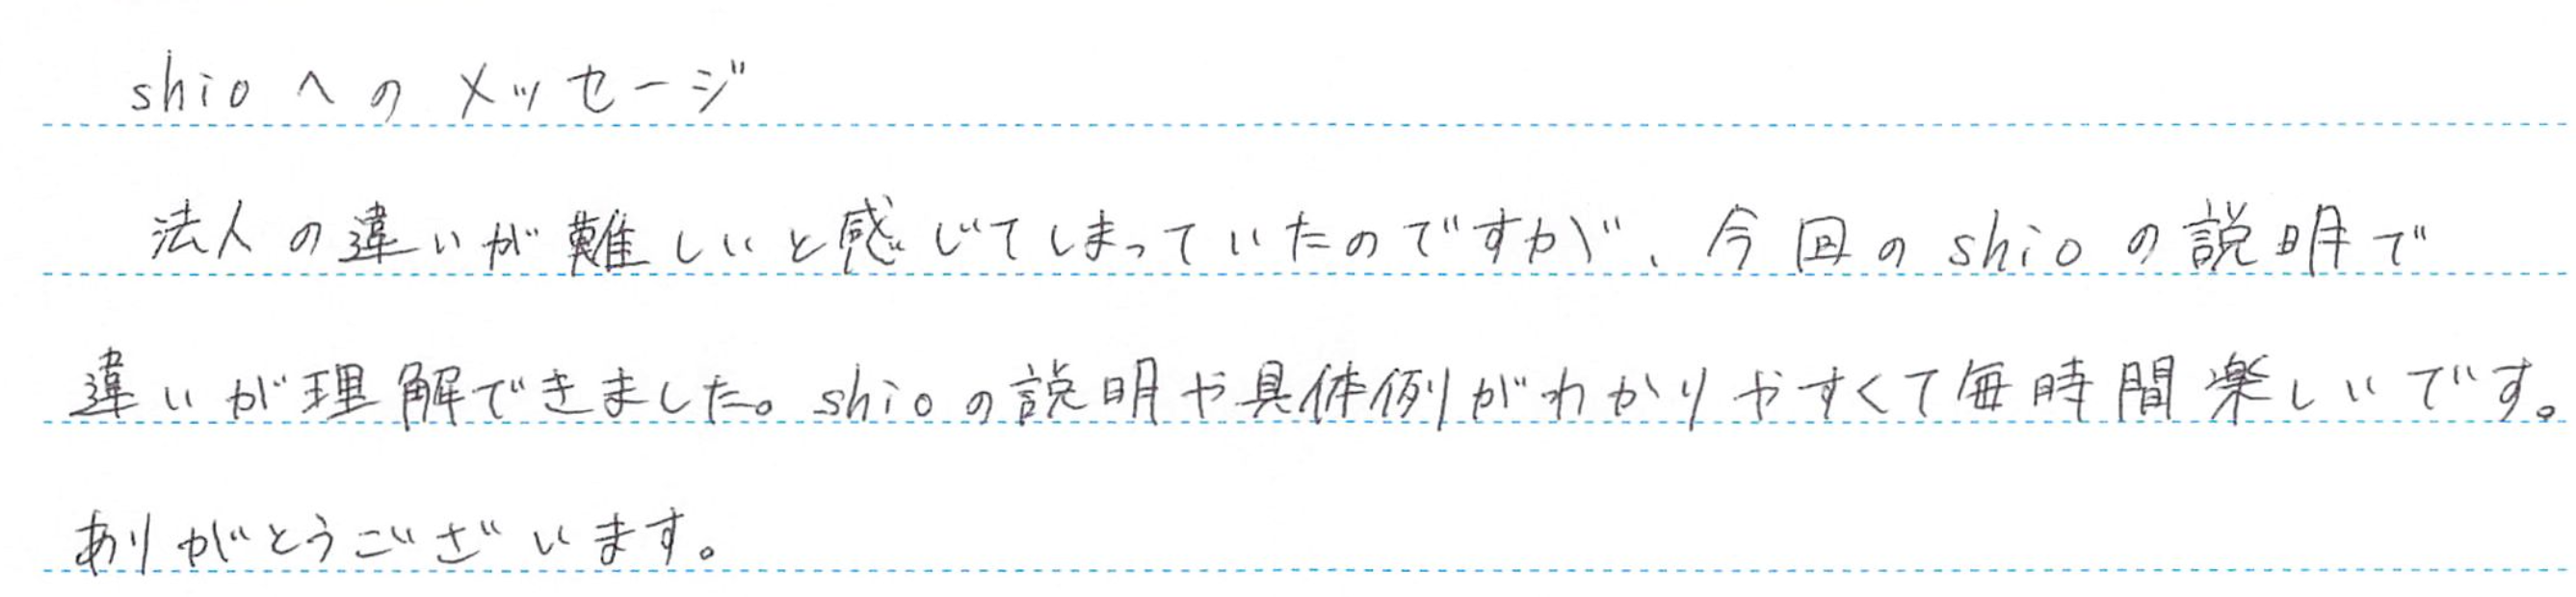 shioへのメッセージ
法人の違いが難しいと感じてしまっていたのですが、今回のshioの説明で
違いが理解できました。shioの説明や具体例がわかりやすくて毎時間楽しいです。
ありがとうございます。